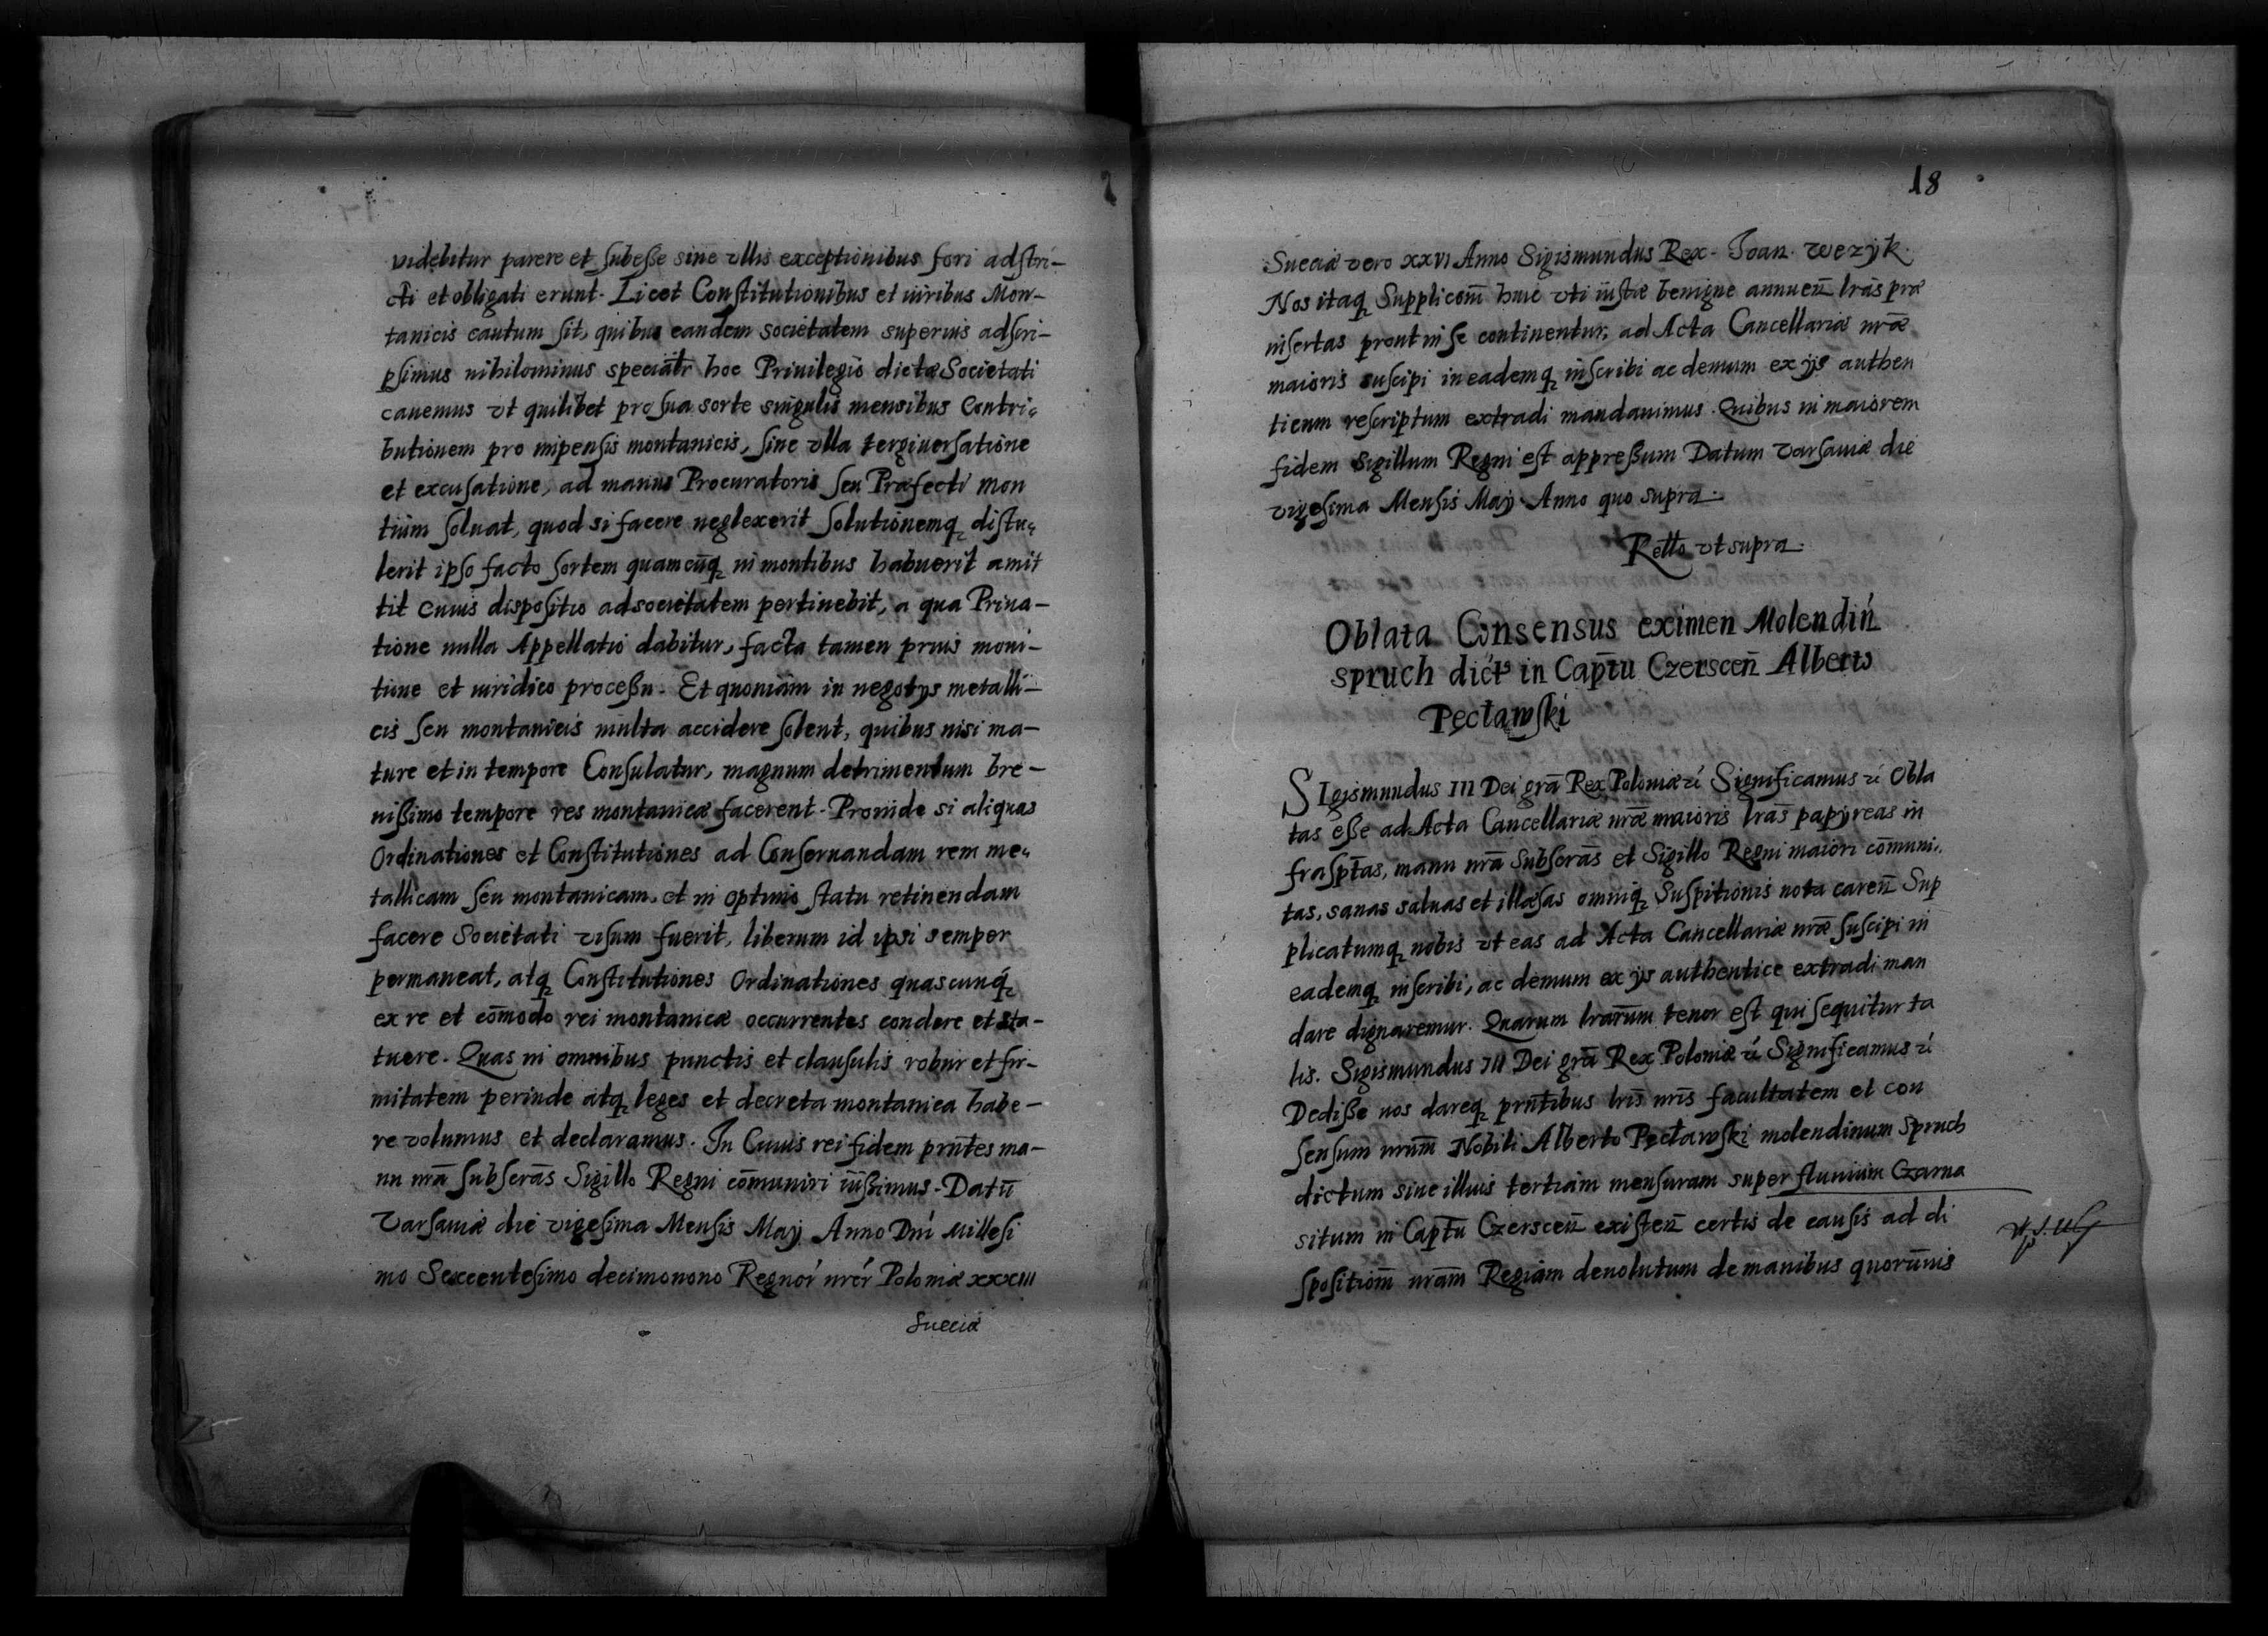 videbitur parere et subesse sine vllis exceptionibus fori adstri-
cti et obligati erunt. Licet Constitutionibus et iuribus Mon-
tanicis cautum sit, quibus eandem societatem superius adscri-
psimus nihilominus speciālr hoc Priuilegio dictæ Societati
cauemus vt quilibet pro sua sorte singulis mensibus Contri-
butionem pro impensis montanicis, sine vlla tergiuersatione
et excusatione, ad manus Procuratoris seu Præfecti mon
tium soluat, quod si facere neglexerit solutionemq distu-
lerit ipso facto sortem quamcūq in montibus habuerit amit
tit cuius dispositio ad societatem pertinebit, a qua Priua-
tione nulla Appellatio dabitur, facta tamen prius moni-
tione et iuridico processu. Et quoniam in negotys metalli-
cis seu montanicis multa accidere solent, quibus nisi ma-
ture et in tempore Consulatur, magnum detrimentum bre-
uissimo tempore res montanicæ facerent. Proinde si aliquas
Ordinationes et Constitutiones ad Conseruandam rem me-
tallicam seu montanicam, et in optimo statu retinendam
facere Societati visum fuerit, liberum id ipsi semper
permaneat, atq Constitutiones Ordinationes quascunq
ex re et cōmodo rei montanicæ occurrentes condere et sta-
tuere. Quas in omnibus punctis et clausulis robur et fir-
mitatem perinde atq leges et decreta montanica habe-
re volumus et declaramus. In Cuius rei fidem prñtes ma-
nu nrā subscrās Sigillo Regni cōmuniri iussimus. Datū
Varsauiæ die vigesima Mensis Maÿ Anno Dni Millesi
mo Sexcentesimo decimonono Regnor nrōr Poloniæ XXXIII
Sueciæ
18
Sueciæ vero XXVI Anno Sigismundus Rex. Joan. Wezÿk.
Nos itaq Supplicōm huic vti iustæ benigne annueñ lrās præ
insertas prout in se continentur, ad Acta Cancellariæ nrāe
maioris suscipi in eademq inscribi ac demum ex ÿs authen
ticum rescriptum extradi mandauimus. Quibus in maiorem
fidem Sigillum Regni est appressum Datum Varsauiæ die
vigesima Mensis Maÿ Anno quo supra.
Rello vt supra.
Oblata Consensus eximen Molendiń
spruch dict in Cap̄tu Czersceñ Alberto
Pęcławski
SIgismundus III Dei grā Rex Poloniæ ꝛć Significamus ꝛć Obla
tas esse ad Acta Cancellariæ nrāe maioris lrās papÿreas in
frasp̄tas, manu nrā subscrās et Sigillo Regni maiori cōmuni-
tas, sanas saluas et illæsas omniq Suspitionis nota careñ Sup
plicatumq nobis vt eas ad Acta Cancellariæ nrāe suscipi in
eademq inscribi, ac demum ex ÿs authentice extradi man
dare dignaremur. Quarum lrarūm tenor est qui sequitur ta
lis. Sigismundus III Dei grā Rex Poloniæ ꝛć Significamus ꝛć
Dedisse nos dareq prñtibus lrīs nrīs facultatem et con
sensum nrūm Nobili Alberto Pęcławski molendinum Spruch
dictum siue illius tertiam mensuram super fluuium Czarna
situm in Cap̄tu Czersceñ existeñ certis de causis ad di
spositiōm nrām Regiam deuolutum de manibus quorūnis